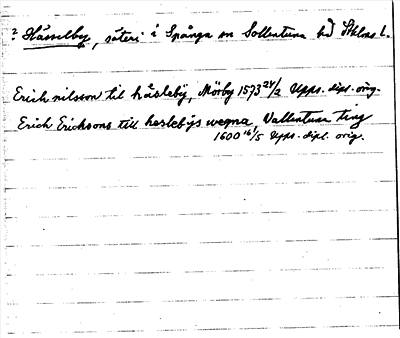 ? Hässelby, säteri i Spånga sn Sollentuna hd Sthlms l.
Erich nilsson til håsleby, Mörby 1573 24/2 Upps. dipl. orig.
Erich Ericksons till heslebÿs wegna Vallentuna Ting
1600 16/5 Upps. dipl. orig.